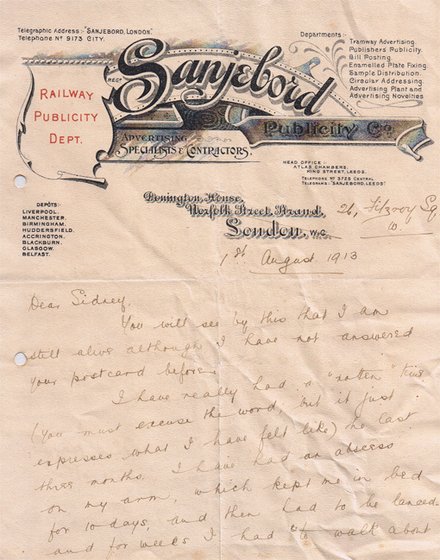 Telegraphic Address:- "SANJEBORD, LONDON."
Telephone Nº 9173 CITY.
Departments:-
Tramway Advertising.
Publishers Publicity.
Bill Posting.
Enamelled Plate Fixing
Sample Distribution.
Circular Addressing
Advertising Plant and
Advertising Novelties
REGD
Sanjebord
Publicity Co.
RAILWAY
PUBLICITY
DEPT.
ADVERTISING
SPECIALISTS & CONTRACTORS.
HEAD OFFICE
ATLAS CHAMBERS,
KING STREET, LEEDS.
TELEPHONE Nº 3725 CENTRAL
TELEGRAMS: "SANJEBORD, LEEDS"
DEPÔTS:
LIVERPOOL.
MANCHESTER.
BIRMINGHAM.
HUDDERSFIELD.
ACCRINGTON.
BLACKBURN.
GLASGOW.
BELFAST.
Donington House,
Norfolk Street, Strand,
London, W.C.
26, Fitzroy Sq
W.
1st August 1913
Dear Sidney,
You will see by this that I am
still alive although I have not answered
your postcard before.
I have really had a "rotten" time
(You must excuse the word, but it just
expresses what I have felt like) the last
three months. I have had an abscess
on my arm, which kept me in bed
for 10 days, and then had to be lanced
and for weeks I had to walk about